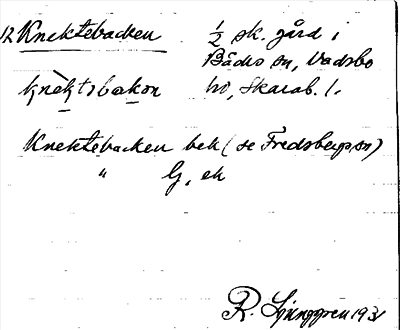 12 Knektebacken ½ sk. gård i
Bäcks sn, Vadsbo
knèktsbakən hd, Skarab. l.
Knektebacken bek (se Fredsbergs sn)
" G, ek
R. Ljunggren 1931